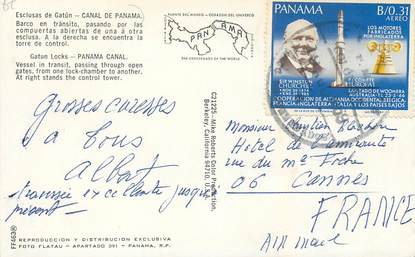 Esclusas de Gatún - CANAL DE PANAMA.
Barco en tránsito, pasando por las
compuertas abiertas de una á otra
esclusa. A la derecha se encuentra la
torre de control.
Gatun Locks - PANAMA CANAL.
Vessel in transit, passing through open
gates, from one lock-chamber to another.
At right stands the control tower.
Grosses caresses
à tous
Albert
traversée excellente jusqu'à
présent -
FF463
REPRODUCCION Y DISTRIBUCION EXCLUSIVA
FOTO FLATAU - APARTADO 391 - PANAMA, R.P.
PUENTE DEL MUNDO - CORAZON DEL UNIVERSO
PANAMA
THE CROSSROADS OF THE WORLD
C21225-Mike Roberts Color Production,
Berkeley, California 94710, U.S.A.
PANAMA B/0.31
AEREO
LOS MOTORES
FABRICADOS
POR INGLATERRA
SIR WINSTON
CHURCHILL
COHETE
EUROPA 1
LANZADO DE WOOMERA
AUSTRALIA
COOPERACION DE ALEMANIA OCCIDENTAL, BELGICA,
FRANCIA, INGLATERRA, ITALIA Y LOS PAISES BAJOS
Monsieur
Hotel de
rue du Mal Foche
06 Cannes
FRANCE
AIR MAIL